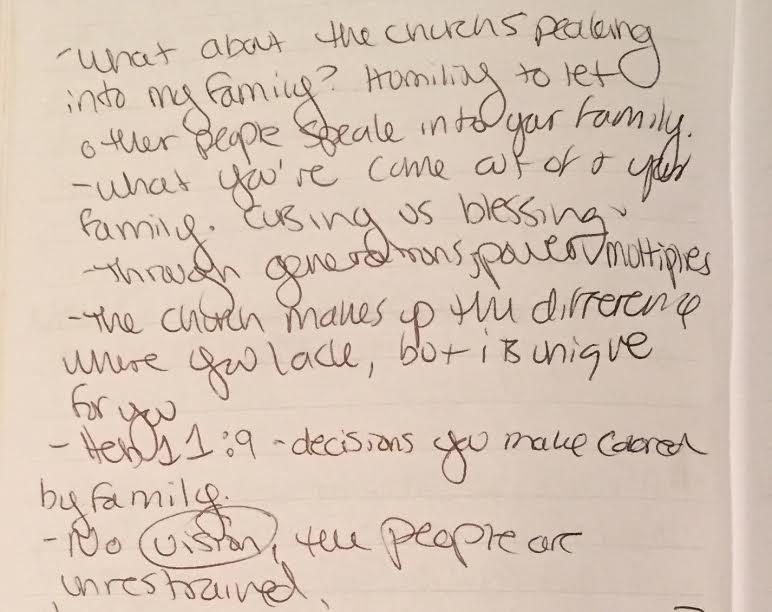 - What about the church speaking
into my family? Humiling to let
other people speak into your family.
- What you've come out of & your
family. Cursing vs blessing.
- Through generations, power multiplies
- The church makes up the difference
where you lack, but is unique
for you
- Heb 11:9 - decisions you make
by family.
- No vision, the people are
unrestrained.